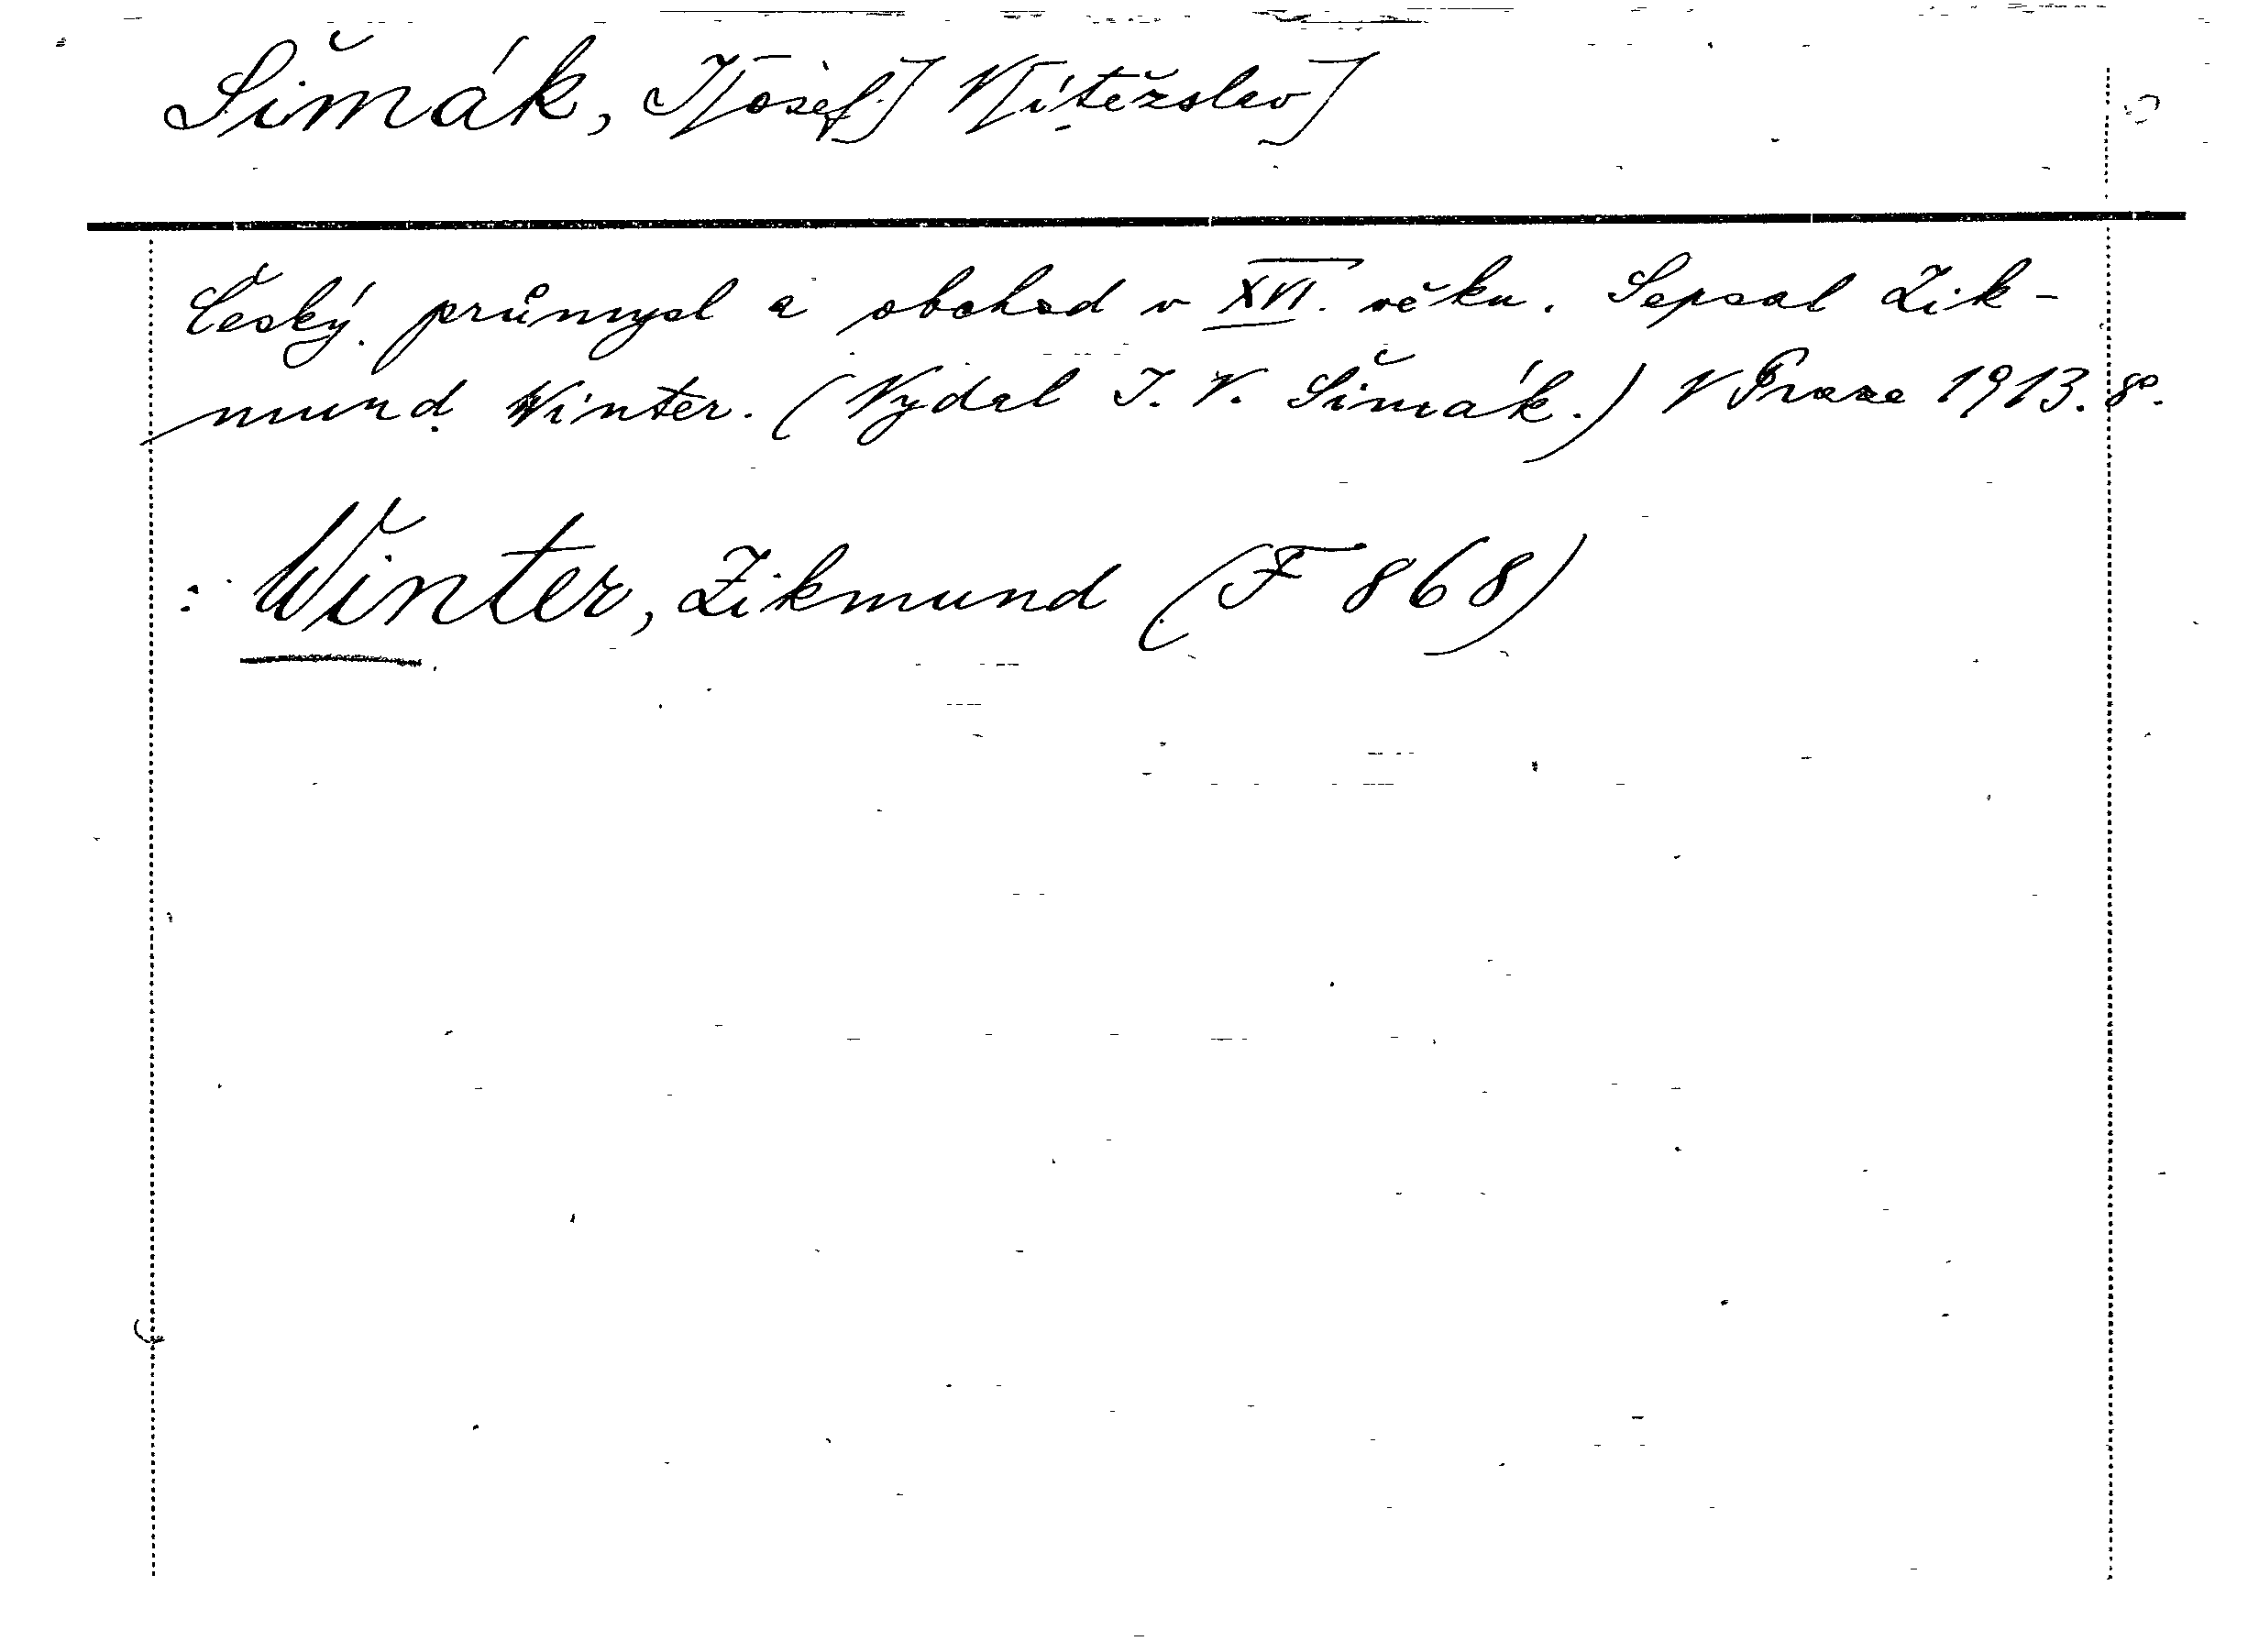 Šimák, J[osef] V[ítězslav]
Český průmysl a obchod v XVI. věku. Sepsal Zik-
mund Winter. (Vydal J. V. Šimák.) V Praze 1913. 8°.
: Winter, Zikmund (F 868)